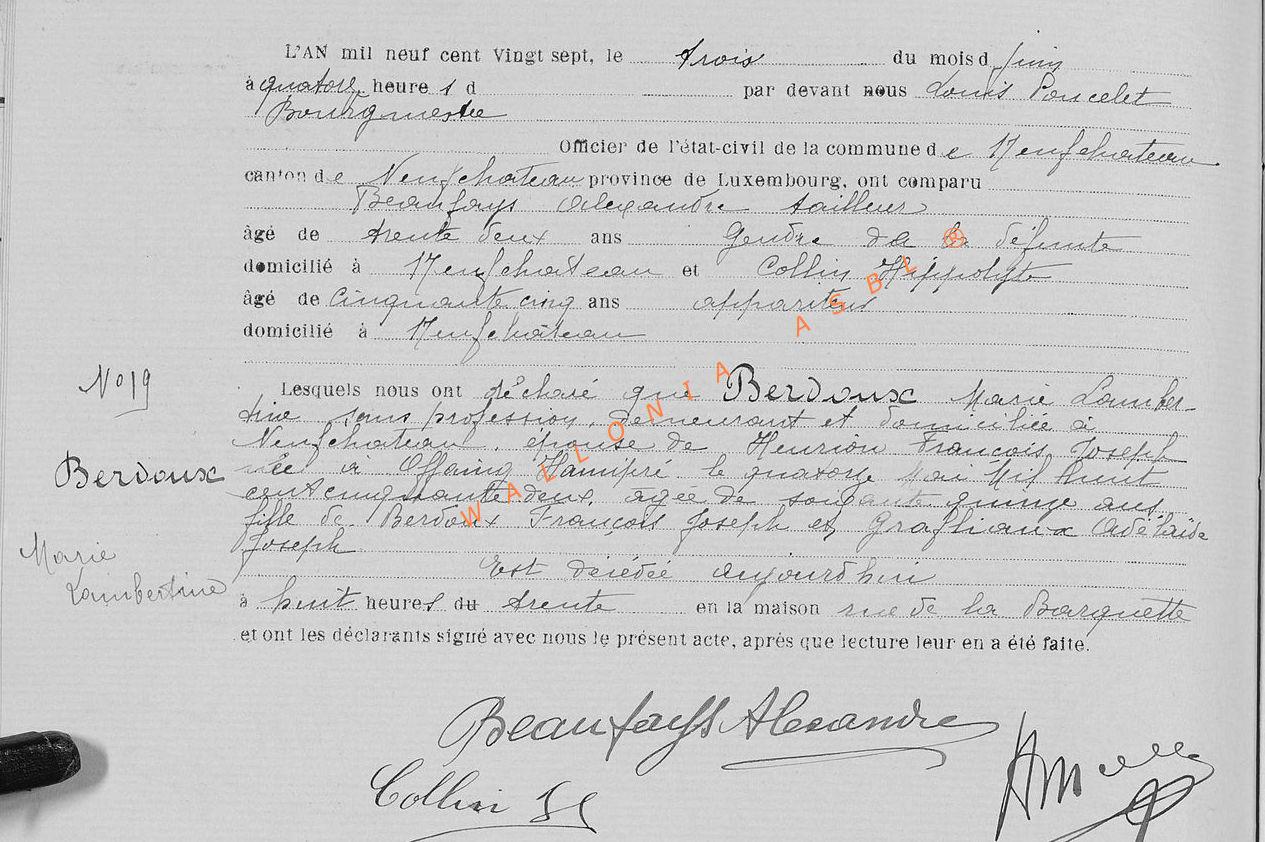 L'AN mil neuf cent Vingt sept, le trois du mois d Juin
à quatorze heure s d par devant nous Louis Poncelet
Bourgmestre
Officier de l'état-civil de la commune de Neufchateau
canton de Neufchateau province de Luxembourg, ont comparu
Beaufays Alexandre tailleur
âgé de trente deux ans Gendre de la défunte
domicilié à Neufchateau et Collin Hippolyte
âgé de cinquante cinq ans appariteur
domicilié à Neufchâteau
Nº 19
Lesquels nous ont déclaré que Berdoux Marie Lamber-
tine sans profession, demeurant et domiciliée à
Neufchateau, épouse de Henrion François Joseph
Berdoux
née à Offaing Hamipré le quatorze Mai Mil huit
cent cinquante deux, agée de soixante quinze ans
fille de Berdoux François Joseph et Grafliaux Adélaïde
Joseph
Marie
Lambertine
Est décédée aujourd'hui
à huit heures du trente en la maison rue de la Barquette
et ont les déclarants signé avec nous le présent acte, après que lecture leur en a été faite.
Beaufays Alexandre
Collin H
WALLONIA ASBL